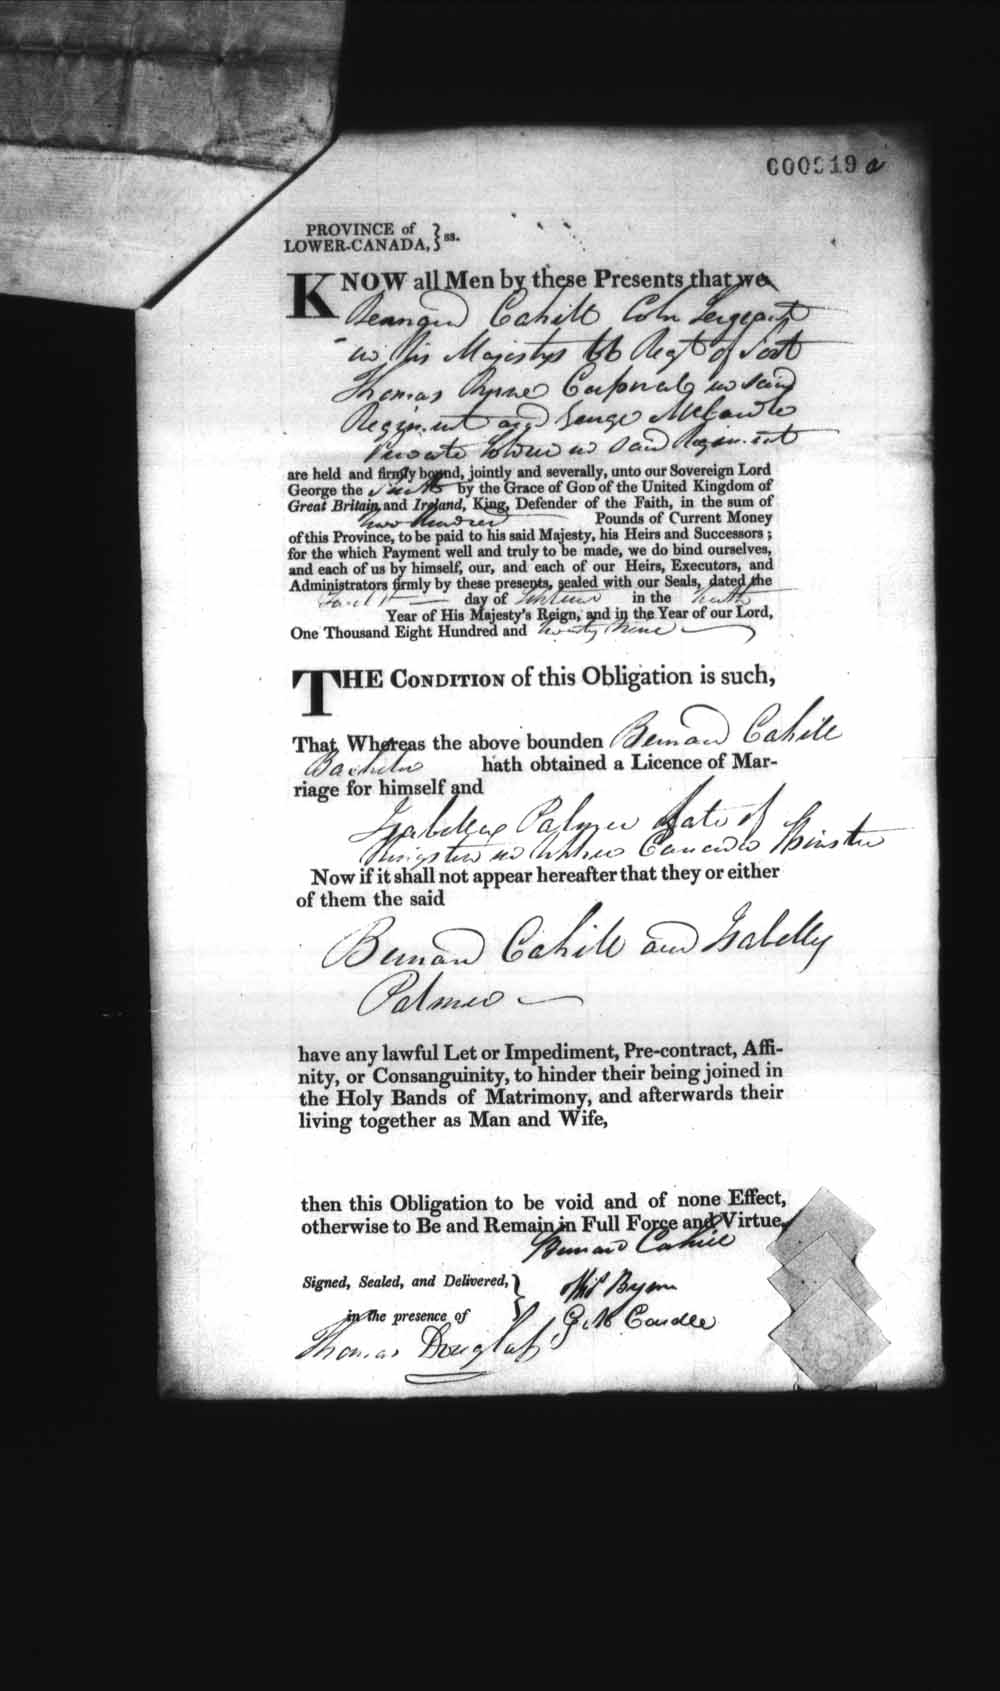 000919 a
PROVINCE of
LOWER-CANADA, } ss.
KNOW all Men by these Presents that we
Bernard Cahill Colr Sergeant
in His Majestys 66 Regt of Foot
Thomas Byrne Corporal in said
Regiment and George McCardle
Private Soldier in said Regiment
are held and firmly bound, jointly and severally, unto our Sovereign Lord
George the Fourth by the Grace of GOD of the United Kingdom of
Great Britain and Ireland, King, Defender of the Faith, in the sum of
two hundred Pounds of Current Money
of this Province, to be paid to his said Majesty, his Heirs and Successors;
for the which Payment well and truly to be made, we do bind ourselves,
and each of us by himself, our, and each of our Heirs, Executors, and
Administrators firmly by these presents, sealed with our Seals, dated the
day of in the tenth
Year of His Majesty's Reign, and in the Year of our Lord,
One Thousand Eight Hundred and twenty nine
THE CONDITION of this Obligation is such,
That Whereas the above bounden Bernard Cahill
Bachelor hath obtained a Licence of Mar-
riage for himself and
Isabella Palmer late of
Kingston in Upper Canada Spinster
Now if it shall not appear hereafter that they or either
of them the said
Bernard Cahill and Isabella
Palmer
have any lawful Let or Impediment, Pre-contract, Affi-
nity, or Consanguinity, to hinder their being joined in
the Holy Bands of Matrimony, and afterwards their
living together as Man and Wife,
then this Obligation to be void and of none Effect,
otherwise to Be and Remain in Full Force and Virtue.
Bernard Cahill
Signed, Sealed, and Delivered, }
Thos Byrne
in the presence of
G Mc Cardle
Thomas Douglass